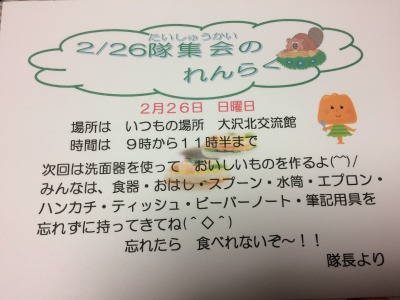 たいしゅうかい
2/26隊集会の
れんらく
2月26日 日曜日
場所は いつもの場所 大沢北交流館
時間は 9時から11時半まで
次回は洗面器を使って おいしいものを作るよ(^^)/
みんなは、食器・おはし・スプーン・水筒・エプロン・
ハンカチ・ティッシュ・ビーバーノート・筆記用具を
忘れずに持ってきてね(^◇^)
忘れたら 食べれないぞ～！！
隊長より